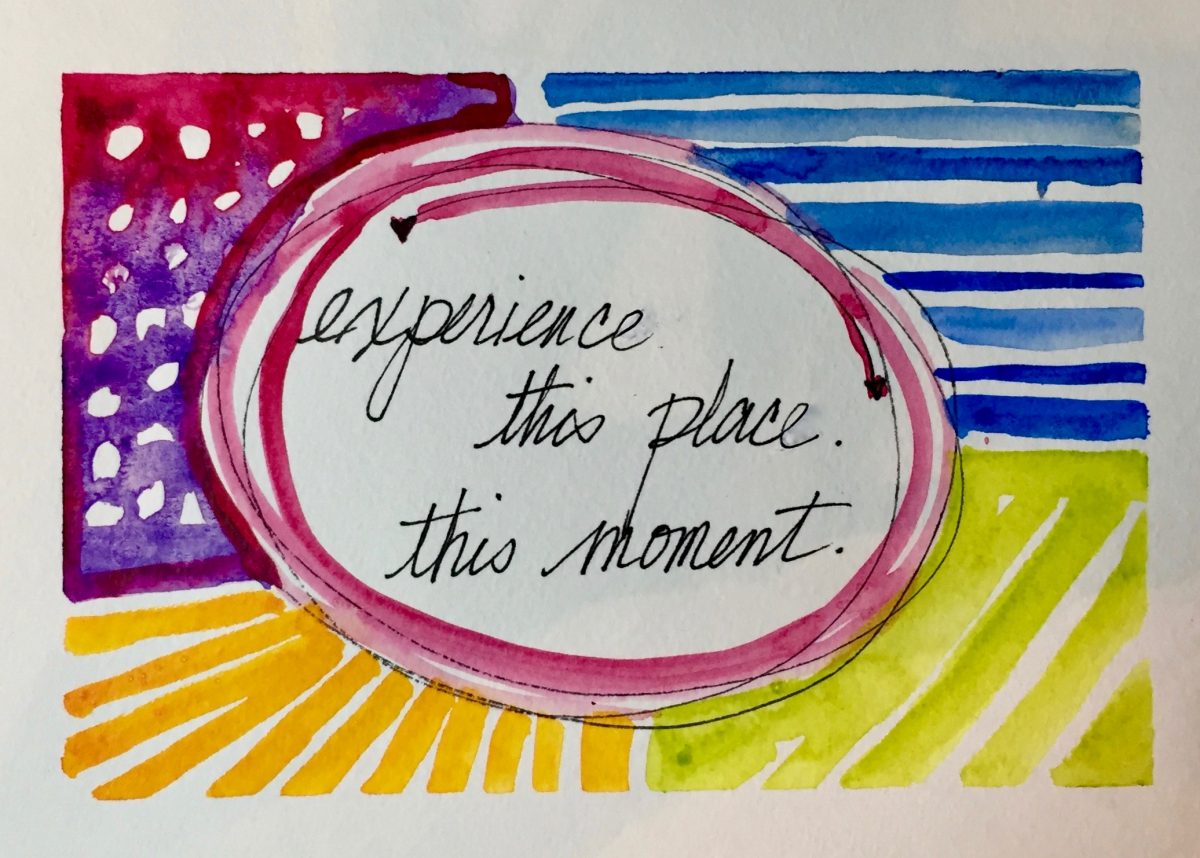 experience
this place.
this moment.